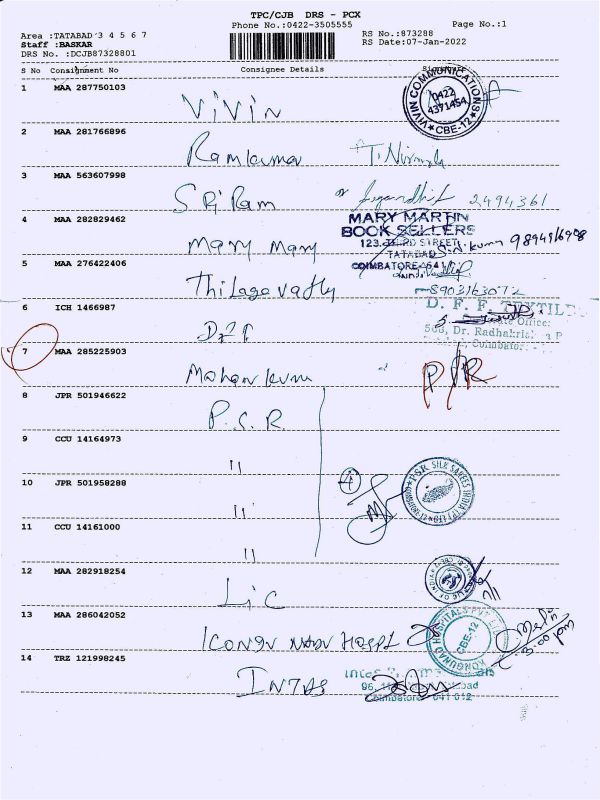 TPC/CJB DRS - PCX
Phone No.:0422-3505555
Page No.:1
Area :TATABAD 3 4 5 6 7
RS No.:873288
Staff :BASKAR
RS Date:07-Jan-2022
DRS No. :DCJB87328801
S No Consignment No Consignee Details Signature
1 MAA 287750103 Vivin VIVIN COMMUNICATIONS 0422 4371454 ★ CBE-12 ★
2 MAA 281766896 Ramkumar T. Nirmala
3 MAA 563607998 Sri Ram 2494361
4 MAA 282829462 Mary Mary MARY MARTIN
BOOK SELLERS
123, THIRD STREET
TATABAD
COIMBATORE-641
5 MAA 276422406 Thilagavathy 8903163072
6 ICH 1466987 D.F.F. TEXTILE
Office:
Dr. Radhakris
Coimbator
7 MAA 285225903 Mohan kum
8 JPR 501946622 P.S.R.
9 CCU 14164973 "
10 JPR 501958288 " 4 PSR SILK SAREES INDIA (P) LTD
11 CCU 14161000 "
12 MAA 282918254 Lic
13 MAA 286042052 KONGUNAD HOSPITALS PVT LTD CBE-12 3.00 pm
14 TRZ 121998245 INTAS
Coimbatore - 641 012